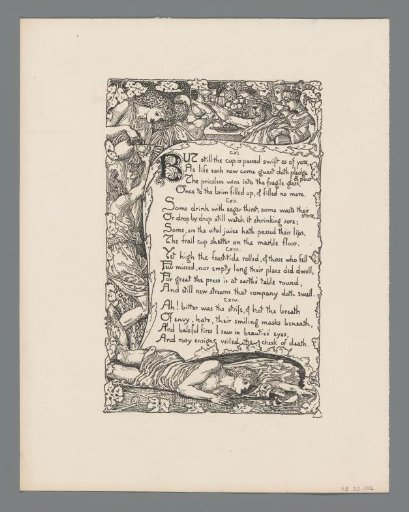 CXI
BUT still the cup is passed swift as of yore,
As life each new come guest doth pledge & pour
The priceless wine into the fragile glass;
Once to the brim filled up, & filled no more.
CXII
Some drink with eager thirst, some waste their store
Or drop by drop still watch it shrinking sore;
Some, ere the vital juice hath passed their lips,
The frail cup shatter on the marble floor.
CXIII
Yet high the feast-tide rolled, & those who fell
Few missed, nor empty long their place did dwell,
For great the press is at earth's table round,
And still new streams that company doth swell.
CXIV
Ah! bitter was the strife, & hot the breath
Of envy, hate, their smiling masks beneath,
And baleful fires I saw in beauties' eyes,
And rosy ensigns veiled the cheek of death.